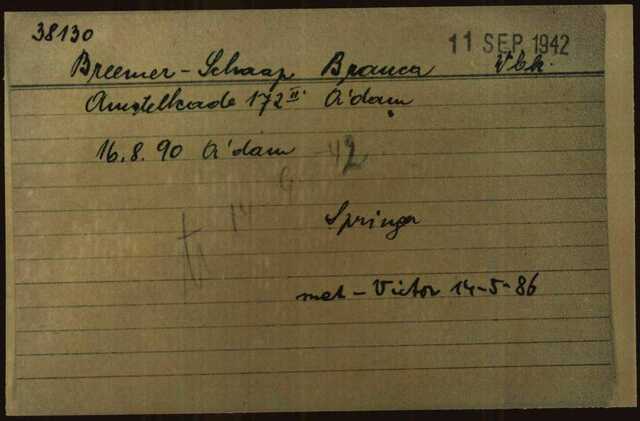 38130
11 SEP. 1942
Breemer - Schaap Branca Vbk.
Amstelkade 172 II A'dam
16.8.90 A'dam
14-9-42
Springer
met - Victor 14-5-86